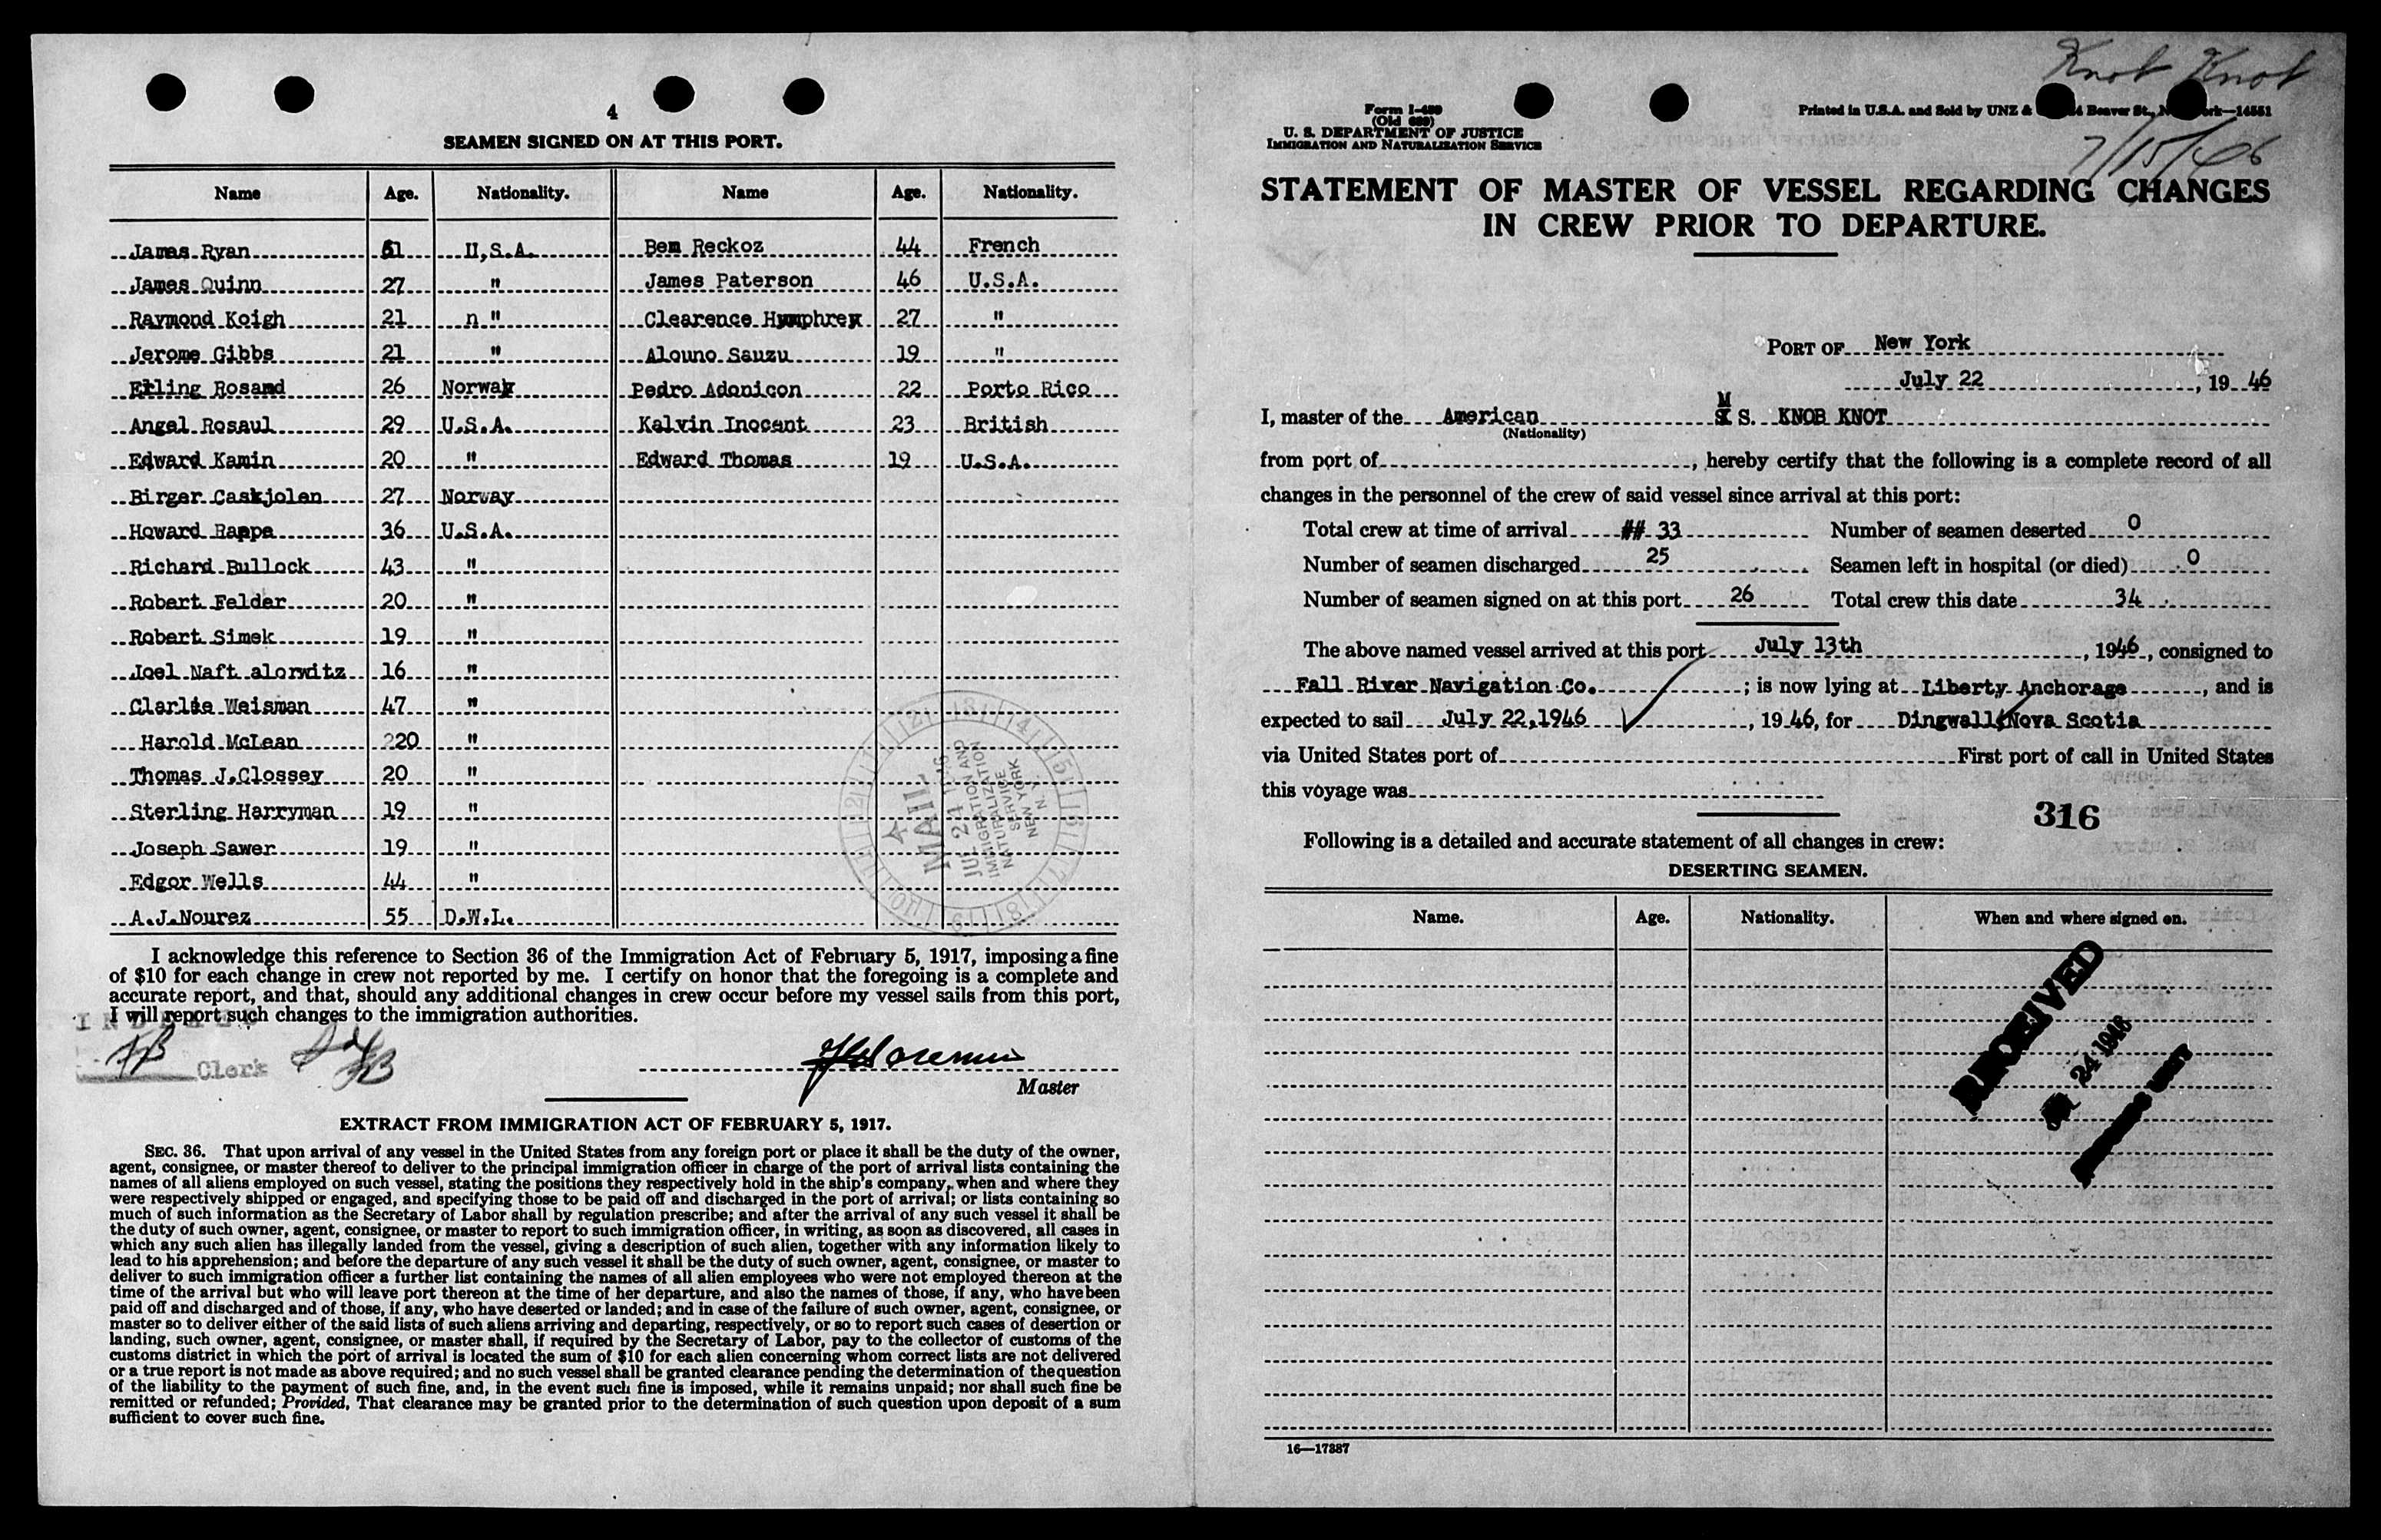 4
SEAMEN SIGNED ON AT THIS PORT.
Name Age. Nationality. Name Age. Nationality.
James Ryan 51 U,S.A. Ben Reckoz 44 French
James Quinn 27 " James Paterson 46 U.S.A.
Raymond Koigh 21 n " Clearence Humphrey 27 "
Jerome Gibbs 21 " Alouno Sauzu 19 "
Erling Rosand 26 Norway Pedro Adonicon 22 Porto Rico
Angel Rosaul 29 U.S.A. Kalvin Inocent 23 British
Edward Kamin 20 " Edward Thomas 19 U.S.A.
Birger Caskjolen 27 Norway
Howard Rappe 36 U.S.A.
Richard Bullock 43 "
Robert Felder 20 "
Robert Simek 19 "
Joel Naft alorwitz 16 "
Clarlie Weisman 47 "
Harold McLean 220 "
Thomas J.Clossey 20 "
Sterling Harryman 19 "
Joseph Sawer 19 "
Edgor Wells 44 "
A.J.Nourez 55 D.W.L.
MAIL
IMMIGRATION AND
NATURALIZATION
SERVICE
NEW YORK
N. Y.
I acknowledge this reference to Section 36 of the Immigration Act of February 5, 1917, imposing a fine
of $10 for each change in crew not reported by me. I certify on honor that the foregoing is a complete and
accurate report, and that, should any additional changes in crew occur before my vessel sails from this port,
I will report such changes to the immigration authorities.
Clerk
Master
EXTRACT FROM IMMIGRATION ACT OF FEBRUARY 5, 1917.
SEC. 36. That upon arrival of any vessel in the United States from any foreign port or place it shall be the duty of the owner,
agent, consignee, or master thereof to deliver to the principal immigration officer in charge of the port of arrival lists containing the
names of all aliens employed on such vessel, stating the positions they respectively hold in the ship's company, when and where they
were respectively shipped or engaged, and specifying those to be paid off and discharged in the port of arrival; or lists containing so
much of such information as the Secretary of Labor shall by regulation prescribe; and after the arrival of any such vessel it shall be
the duty of such owner, agent, consignee, or master to report to such immigration officer, in writing, as soon as discovered, all cases in
which any such alien has illegally landed from the vessel, giving a description of such alien, together with any information likely to
lead to his apprehension; and before the departure of any such vessel it shall be the duty of such owner, agent, consignee, or master to
deliver to such immigration officer a further list containing the names of all alien employees who were not employed thereon at the
time of the arrival but who will leave port thereon at the time of her departure, and also the names of those, if any, who have been
paid off and discharged and of those, if any, who have deserted or landed; and in case of the failure of such owner, agent, consignee, or
master so to deliver either of the said lists of such aliens arriving and departing, respectively, or so to report such cases of desertion or
landing, such owner, agent, consignee, or master shall, if required by the Secretary of Labor, pay to the collector of customs of the
customs district in which the port of arrival is located the sum of $10 for each alien concerning whom correct lists are not delivered
or a true report is not made as above required; and no such vessel shall be granted clearance pending the determination of the question
of the liability to the payment of such fine, and, in the event such fine is imposed, while it remains unpaid; nor shall such fine be
remitted or refunded; Provided, That clearance may be granted prior to the determination of such question upon deposit of a sum
sufficient to cover such fine.
Knot Knot
7/15/46
Form I-489
(Old 689)
U. S. DEPARTMENT OF JUSTICE
IMMIGRATION AND NATURALIZATION SERVICE
Printed in U.S.A. and Sold by UNZ & Beaver St., 14551
STATEMENT OF MASTER OF VESSEL REGARDING CHANGES
IN CREW PRIOR TO DEPARTURE.
PORT OF New York
July 22, 1946
I, master of the American M S. KNOB KNOT
(Nationality)
from port of, hereby certify that the following is a complete record of all
changes in the personnel of the crew of said vessel since arrival at this port:
Total crew at time of arrival ## 33 Number of seamen deserted 0
Number of seamen discharged 25 Seamen left in hospital (or died) 0
Number of seamen signed on at this port 26 Total crew this date 34
The above named vessel arrived at this port July 13th, 1946, consigned to
Fall River Navigation Co.; is now lying at Liberty Anchorage, and is
expected to sail July 22,1946, 1946, for Dingwall, Nova Scotia
via United States port of First port of call in United States
this voyage was
316
Following is a detailed and accurate statement of all changes in crew:
DESERTING SEAMEN.
Name. Age. Nationality. When and where signed on.
RECEIVED
24 1946
16—17387